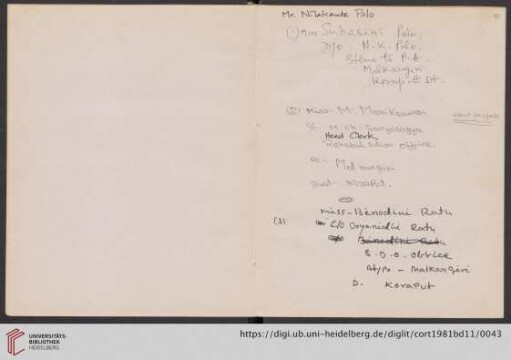 Mr. Nilakanta Polo
(1) Miss Subasini Polo.
D/o N.K. Polo.
Steno to P.A.
Malkangiri
Koraput Dt.
(2) Miss M.
Head Clerk
Rehabilitation office
Malkangiri
Dist. Koraput.
Miss-Benodini Ratu
(3) C/o Doyanidhi Ratu
Benodini Ratu
S.D.O. Office
At/po - Malkangiri
D. Koraput
UNIVERSITÄTS-
BIBLIOTHEK
HEIDELBERG
https://digi.ub.uni-heidelberg.de/diglit/cort1981bd11/0043